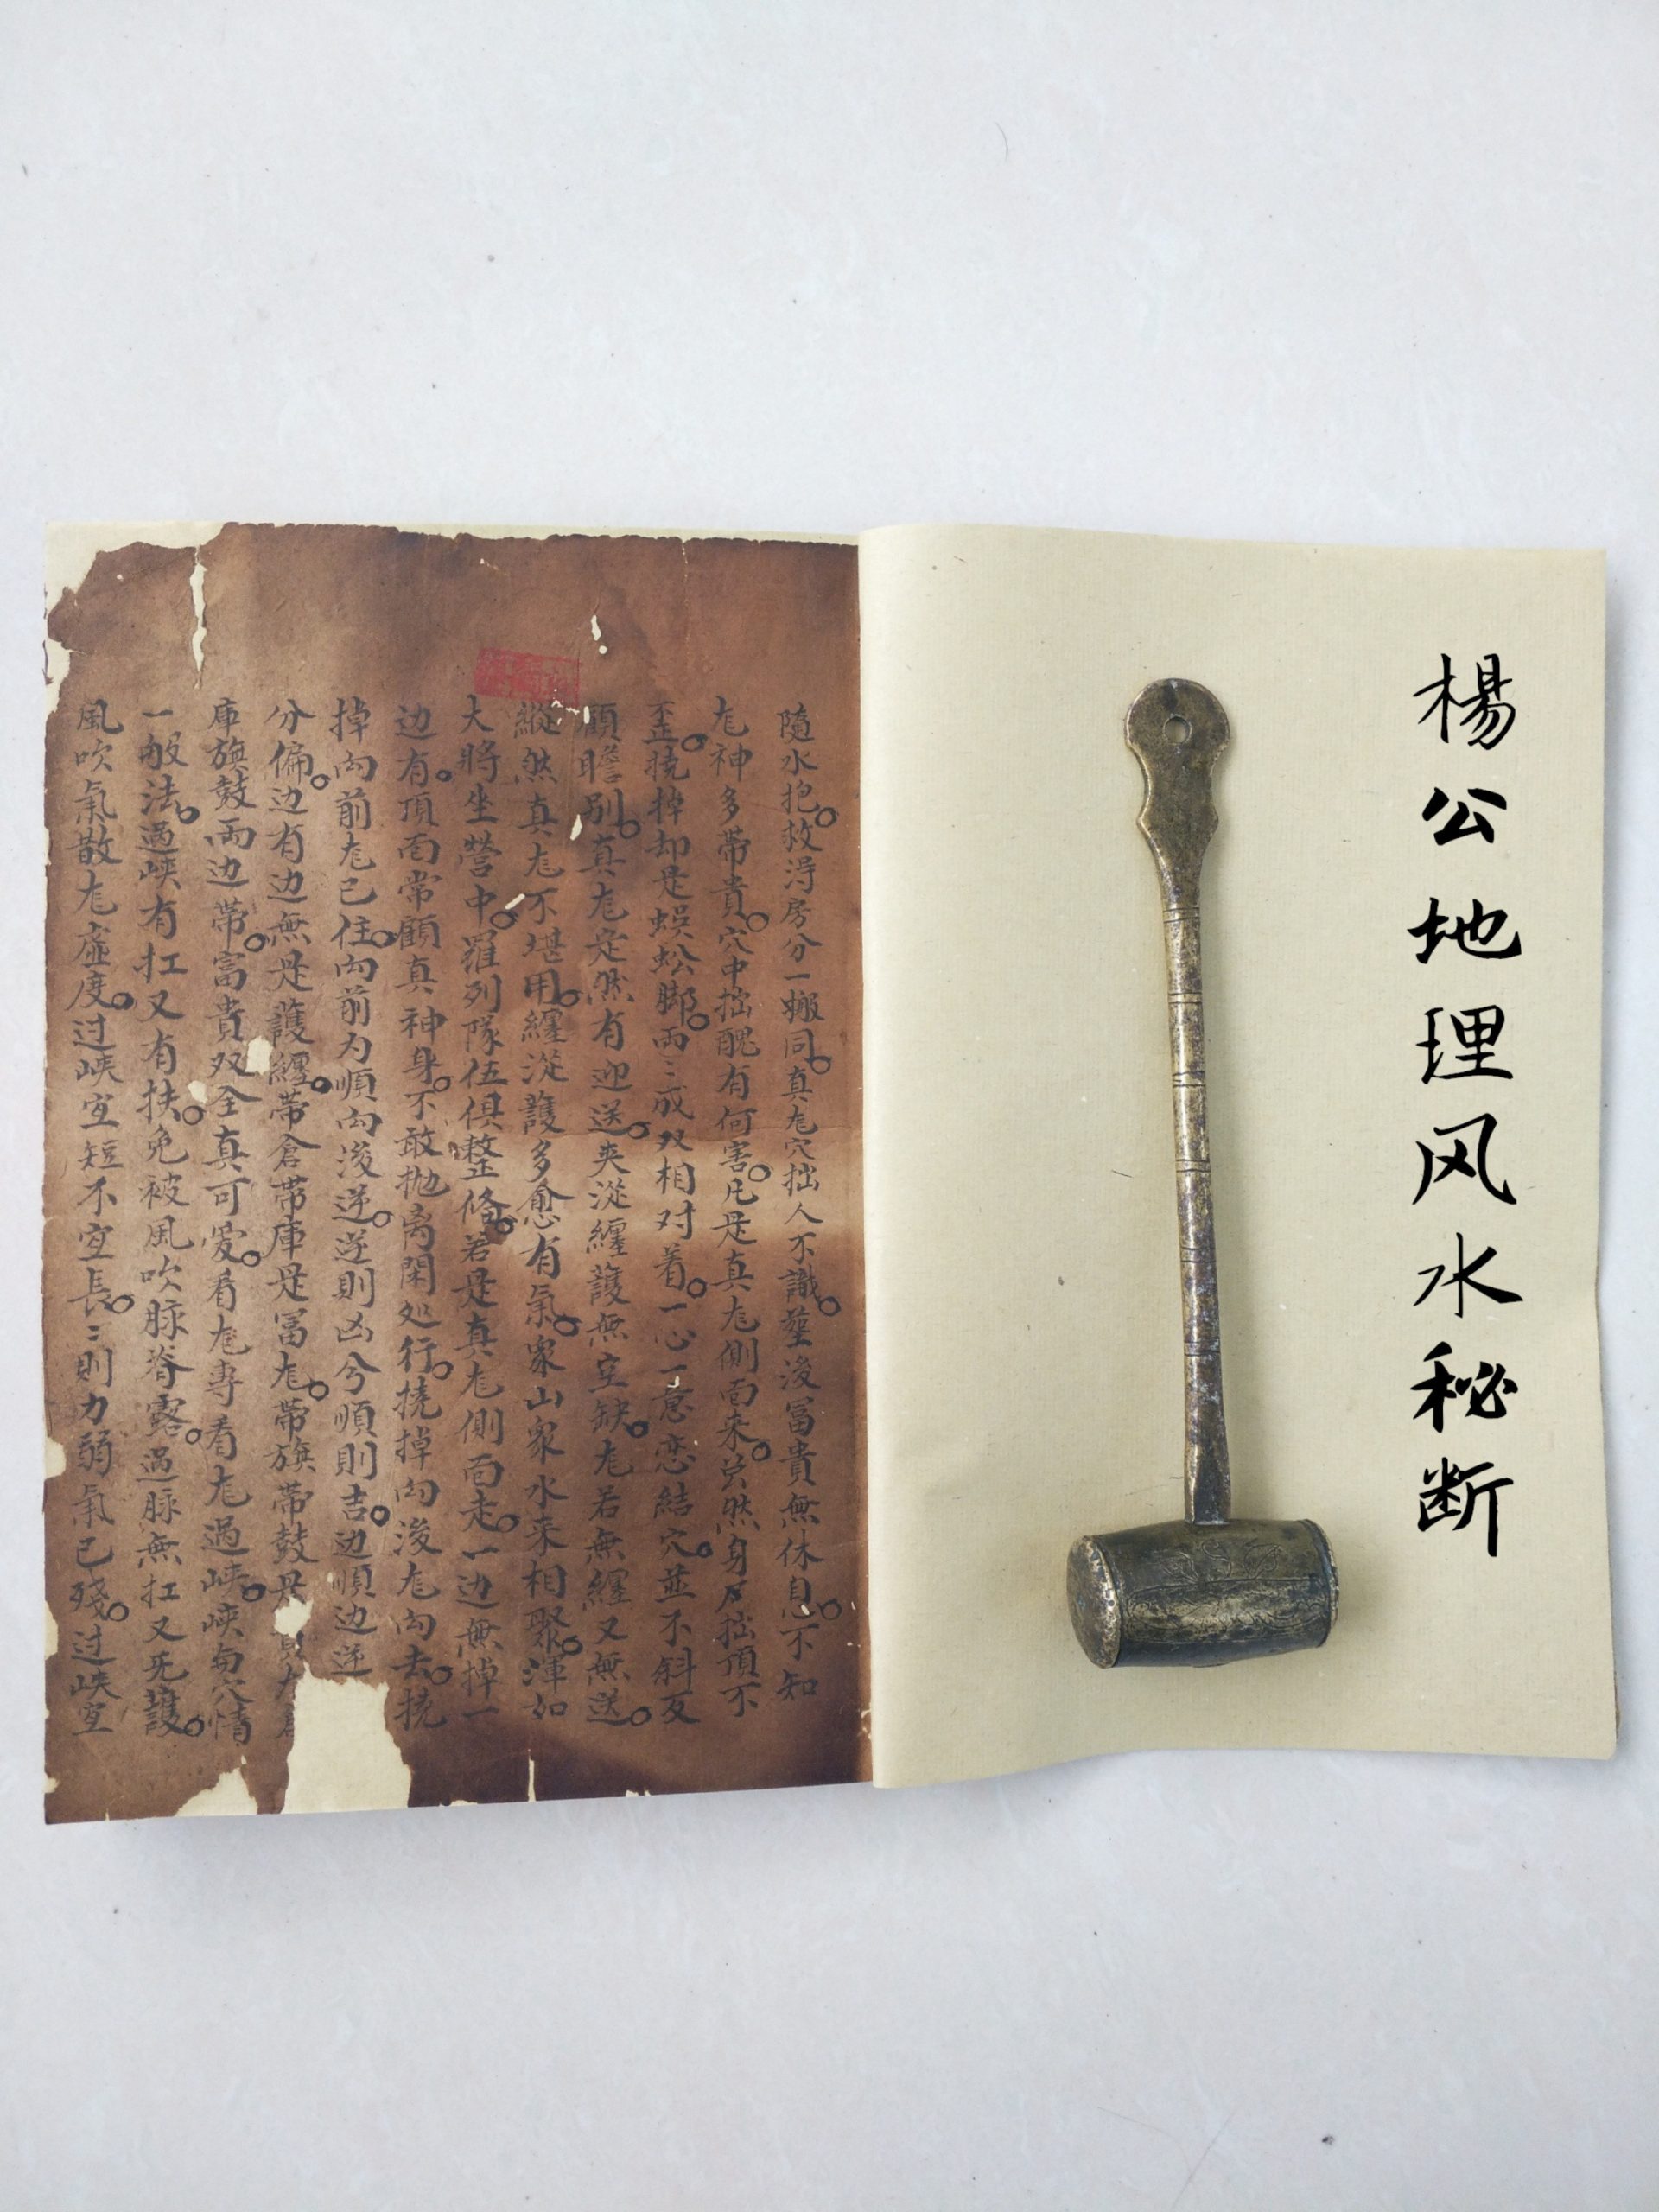 楊公地理风水秘断
隨水抱救得房分一搬同真尨穴拙人不識塟後冨貴無休息不知
尨神多帶貴穴中拙醜有何害凡是真尨側面来㒰然身反拙頂不
歪撓棹却是蜈蚣脚両〻成双相对着一心一意恋結穴並不斜反
顧瞻别真尨定然有迎送夾從纏護無空缺尨若無纏又無送
縱然真尨不堪用纏從護多愈有氣衆山衆水来相聚渾如
大將坐營中羅列隊伍俱整條若是真尨側面走一边無掉一
边有頂面常顧真神身不敢抛离閑処行撓掉向後尨向去撓
掉向前尨已住向前为順向後逆逆則凶兮順則吉边順边逆
分偏边有边無是護纏帶倉帶庫是冨尨帶旗帶鼓是
庫旗鼓両边帶富貴双全真可愛看尨專看尨過峡峡与穴情
一般法過峡有扛又有扶免被風吹脉脊露過脉無扛又无護
風吹氣散尨虚度过峡宜短不宜長〻則力弱氣已殘过峡宜